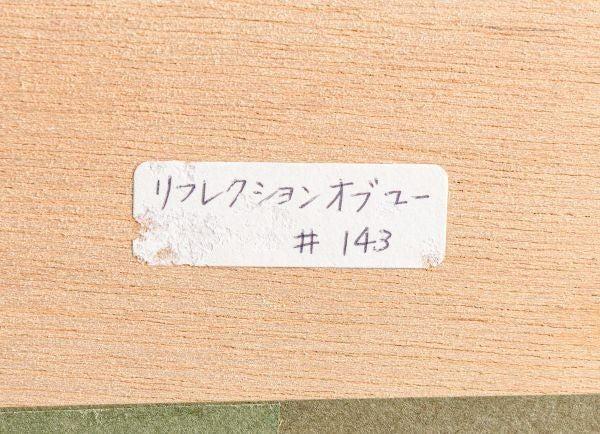 リフレクションオブユー
# 143